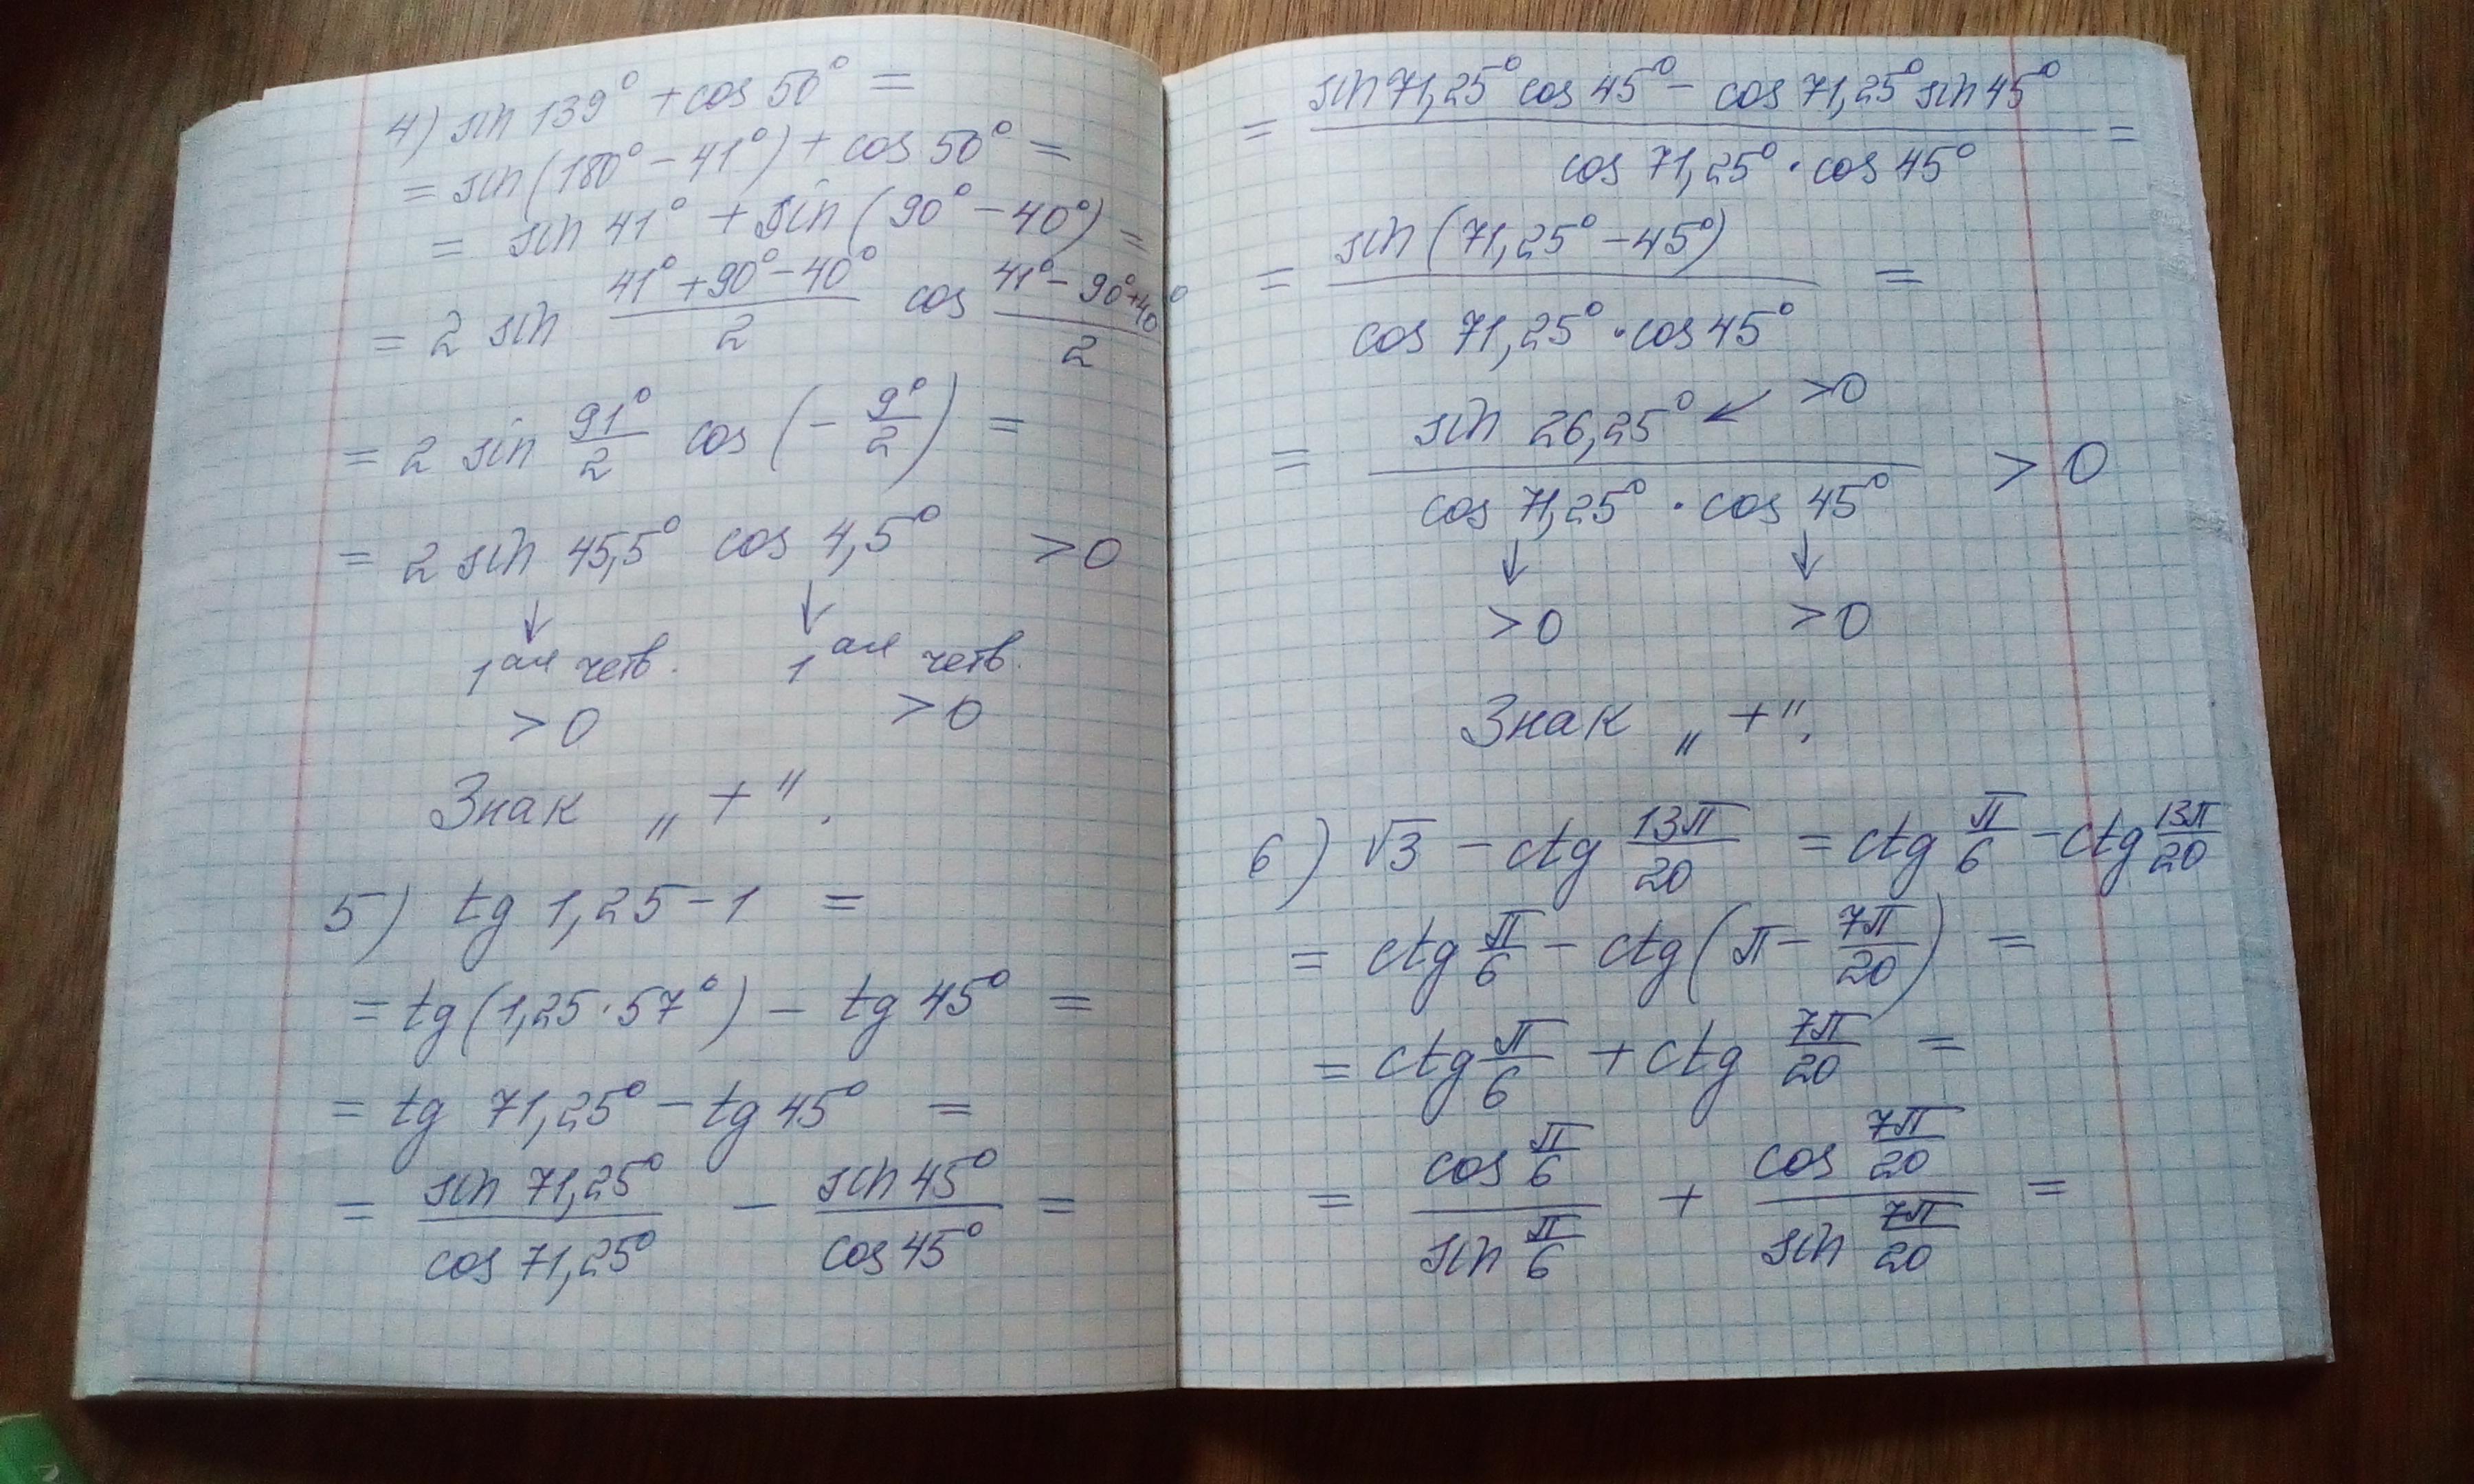 4) sin 139° + cos 50° =
= sin(180° - 41°) + cos 50° =
= sin 41° + sin(90° - 40°) =
= 2 sin (41° + 90° - 40°)/2 cos (41° - 90° + 40°)/2
= 2 sin 91°/2 cos (- 9°/2) =
= 2 sin 45,5° cos 4,5° > 0
↓ ↓
1ая четв. 1ая четв.
> 0 > 0
Знак „ + ".
5) tg 1,25 - 1 =
= tg(1,25 · 57°) - tg 45° =
= tg 71,25° - tg 45° =
= sin 71,25°/cos 71,25° - sin 45°/cos 45° =
= (sin 71,25° cos 45° - cos 71,25° sin 45°)/(cos 71,25° · cos 45°) =
= sin(71,25° - 45°)/(cos 71,25° · cos 45°) =
= sin 26,25° ↙ >0 /(cos 71,25° · cos 45°) > 0
↓ ↓
> 0 > 0
Знак „ + ".
6) √3 - ctg 13π/20 = ctg π/6 - ctg 13π/20
= ctg π/6 - ctg(π - 7π/20) =
= ctg π/6 + ctg 7π/20 =
= cos π/6 / sin π/6 + cos 7π/20 / sin 7π/20 =